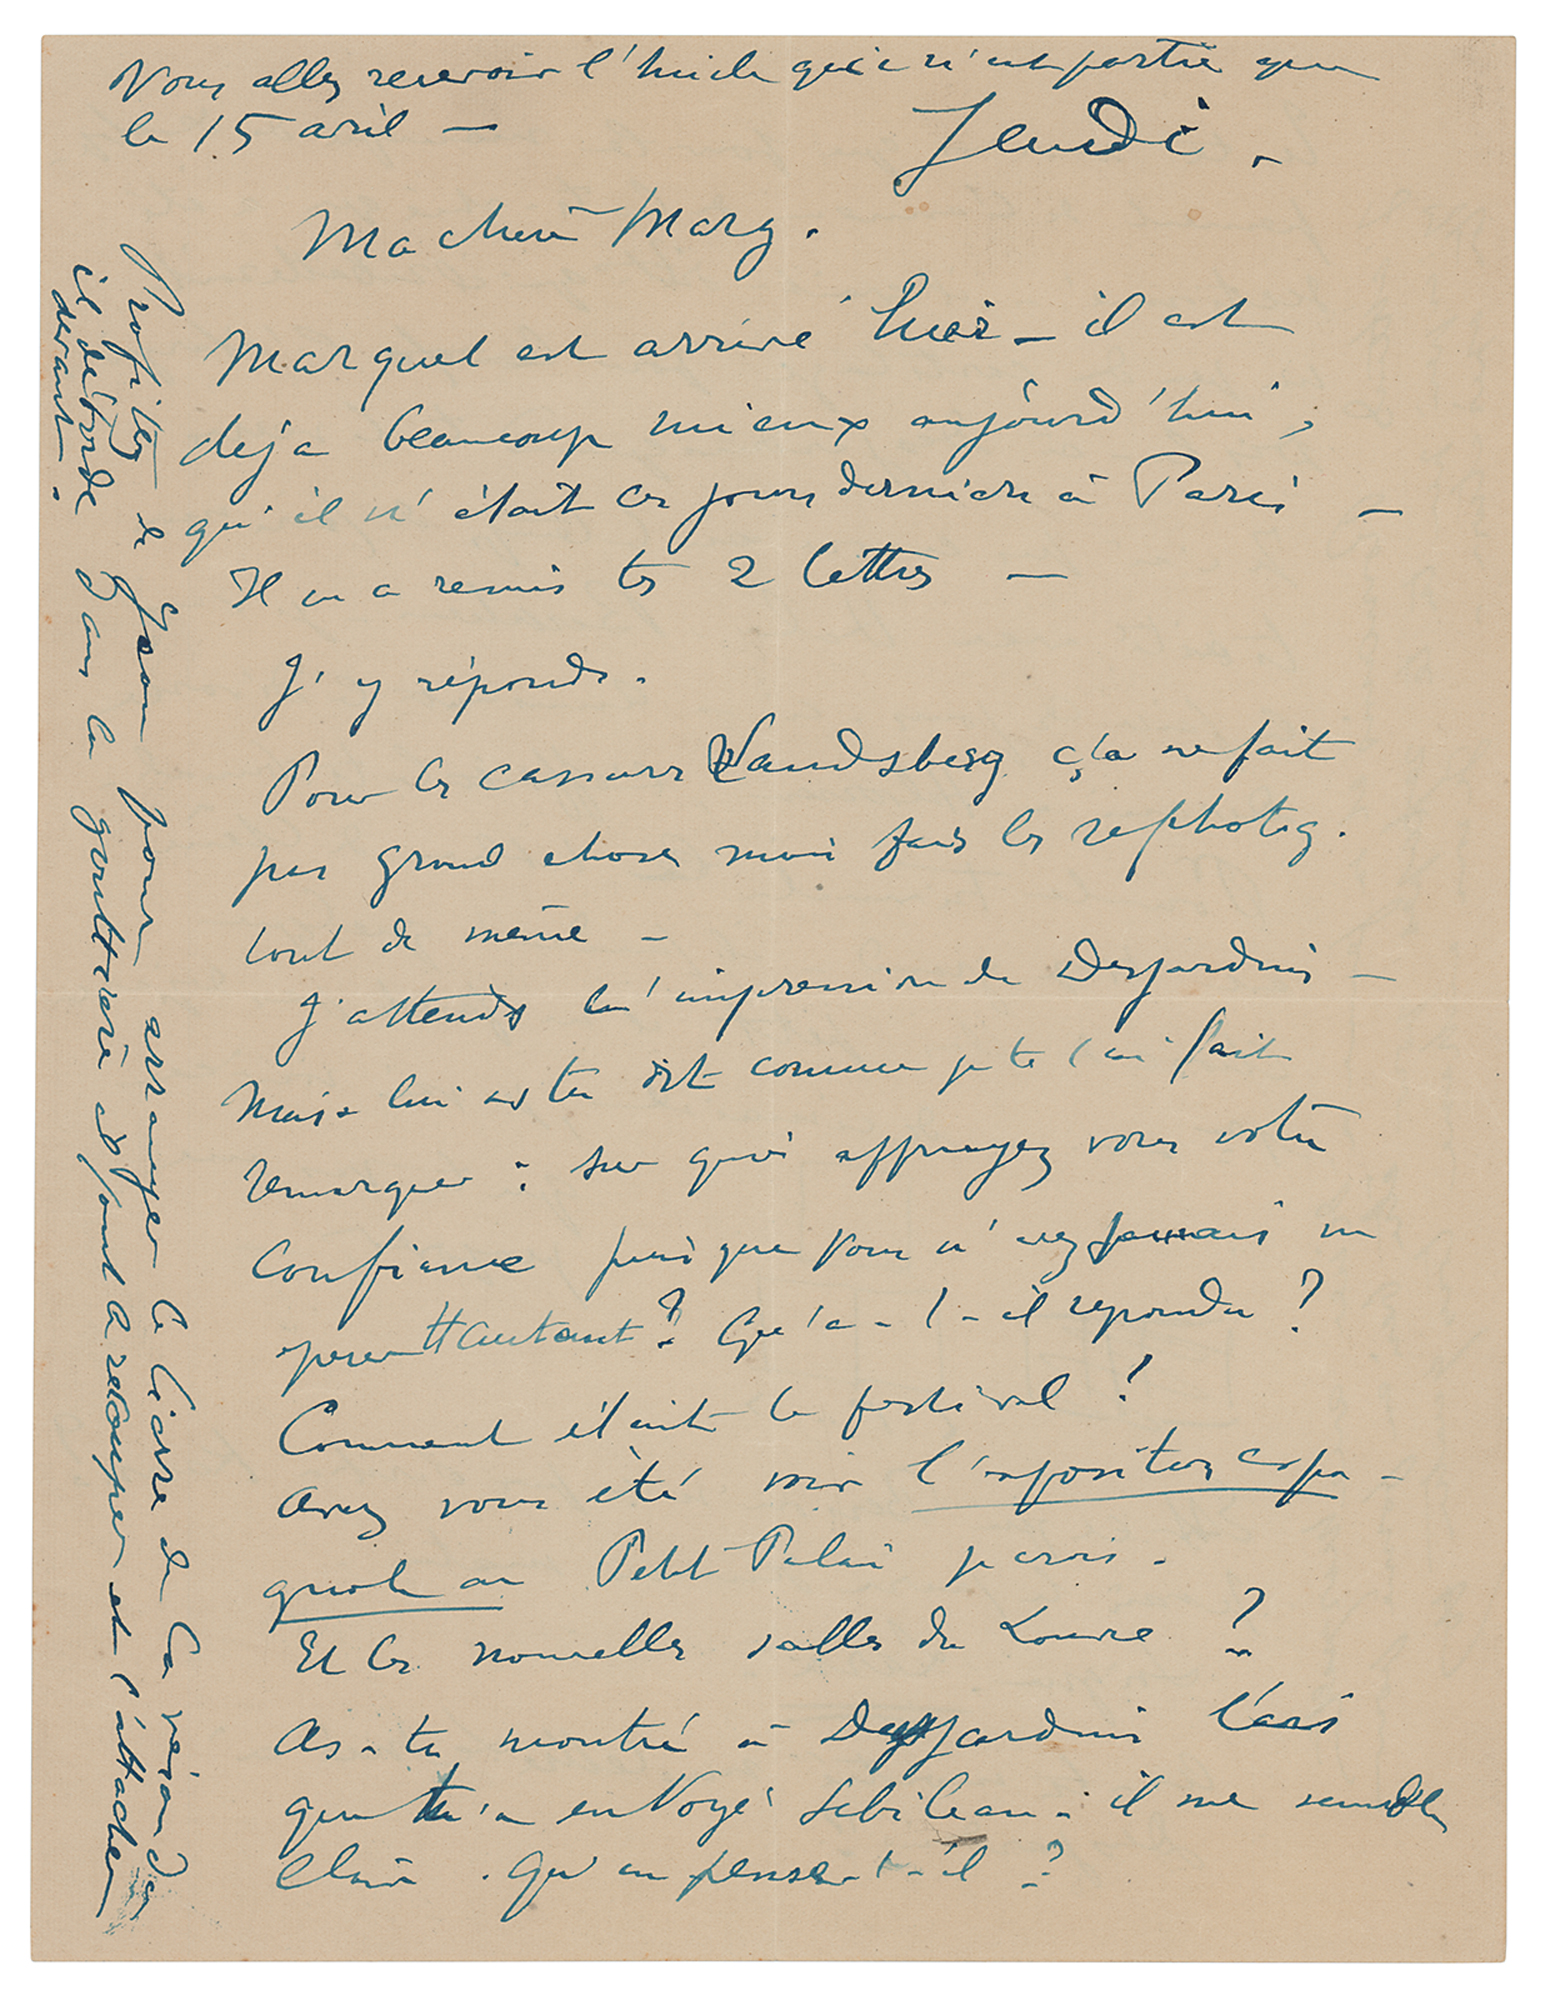 Vous allez recevoir l'huile qui n'est partie que
le 15 avril —
Jeudi.
Ma chère Marg.
Marquet est arrivé hier — il est
deja beaucoup mieux aujourd'hui,
qu'il n'était ces jours derniers à Paris —
Il m'a remis tes 2 lettres —
J'y réponds.
Pour les Landsberg ça ne fait
pas grand chose mais fais les rephotog.
tout de même —
J'attends l'impression de Desjardins —
Mais lui as tu dit comme je te l'ai fait
remarquer : sur quoi appuyez vous votre
confiance puisque vous n'avez jamais vu
? Qu'a-t-il repondu ?
Comment était le festival ?
Avez vous été voir l'exposition espa-
gnole au Petit Palais je crois.
Et les nouvelles salles du Louvre ?
As-tu montré à Desjardins l'avis
que t'a envoyé Sebileau - il me semble
clair. Qu'en pense-t-il ?
Profitez de pour arranger le lierre de la maison des
il déborde dans la gouttière il faut le recouper et l'attacher
devant.